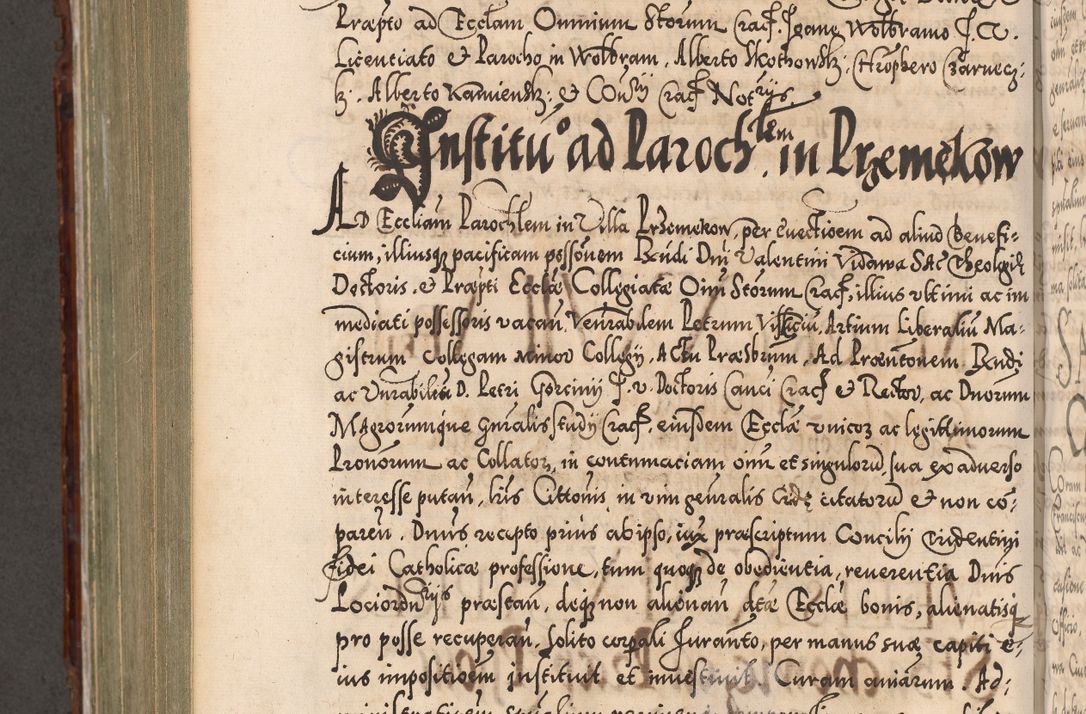 Præpto ad Ecclam Omnium Storum Crac. Joane Wolbramo J. C.
Licentiato & Parocho in Wolbram, Alberto Skothowsk; Chrophero Czarnecz:
k; Alberto Kamiensk; & Cou Crac Notrijs.
Institu° ad Paroch.lem in Przemękow
Ad Eccliam Parochlem in Villa Przemekow, per evectioem ad aliud Benefi-
cium, illiusq pacificam possonem Rndi Dni Valentini Vidawa SAC Theolgię
Doctoris, & Præpti Ecclæ Collegiatæ Oim Storum Crac, illius vltimi ac im
mediati possessoris vacan, Venrabilem Petrum Artium Liberaliu Ma-
gistrum Collegam Minor Collegij, Actu Præsbrum, Ad Præntonem Rndi
ac Vnrabilis D. Petri Gorcinij J. V. Doctoris Canci Crac & Rector, ac Dnorum
Magrorumque Gnralis studij Crac, eiusdem Ecclæ vnicoz ac legittimorum
Pronorum ac Collator, in contumaciam oim et singuloru, sua ex adverso
interesse putan, lris Cittonis in vim genralis citatoru & non co-
paren. Dnus recepto prius ab ipso, iux præscriptum Concilij Tridentini
fidei Catholicæ professione, tum quoq de obedientia, reverentia Dnis
Lociordnrijs præstan, deq non alienan dtæ Ecclæ bonis, alienatisq
pro posse recuperan, solito corpali Juranto, per manus suæ capiti e-
ius impositioem instituit et investiuit Curam aniarum. Ad-